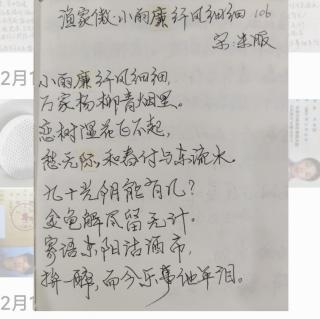 渔家傲 小雨廉纤风细细 106
宋:朱服
小雨廉纤风细细,
万家杨柳青烟里。
恋树湿花飞不起,
愁无际,和春付与东流水。
九十光阴能有几?
金龟解尽留无计。
寄语东阳沽酒市,
拚一醉,而今乐事他年泪。
2月1
2月1